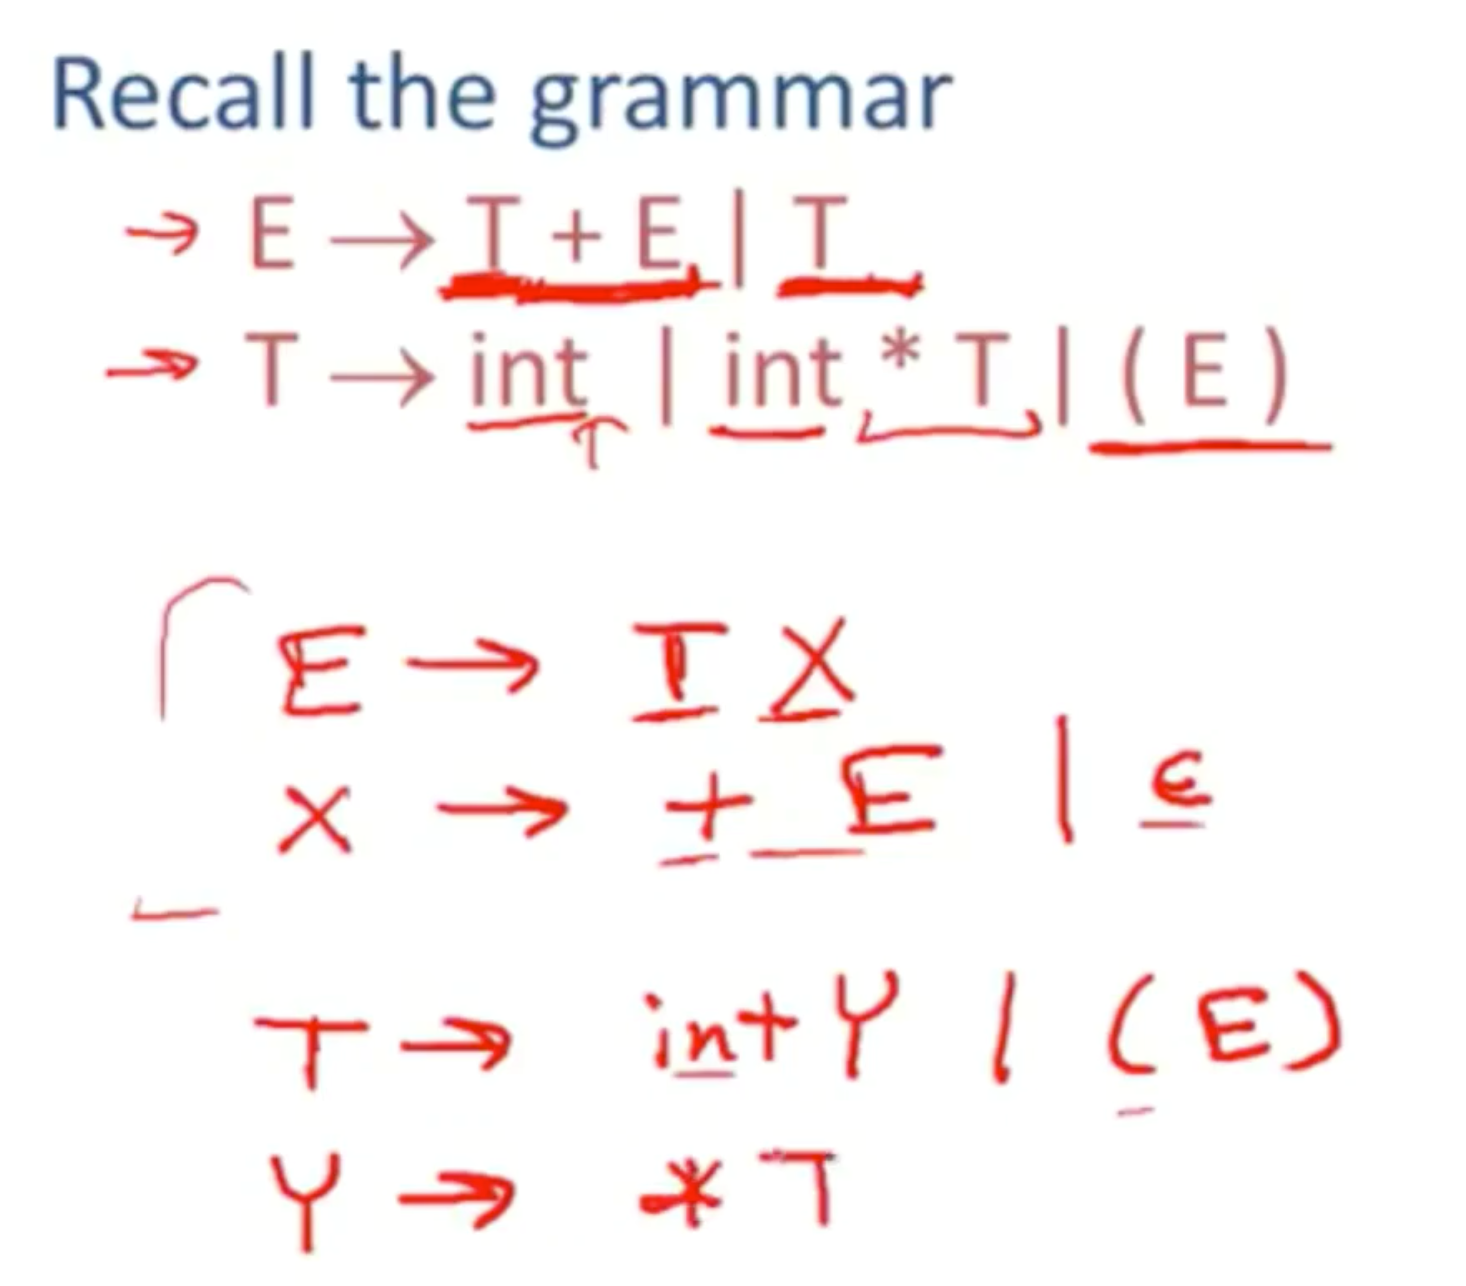 Recall the grammar
→ E → T + E | T
→ T → int | int * T | ( E )
E → T X
X → + E | ε
T → int Y | ( E )
Y → * T